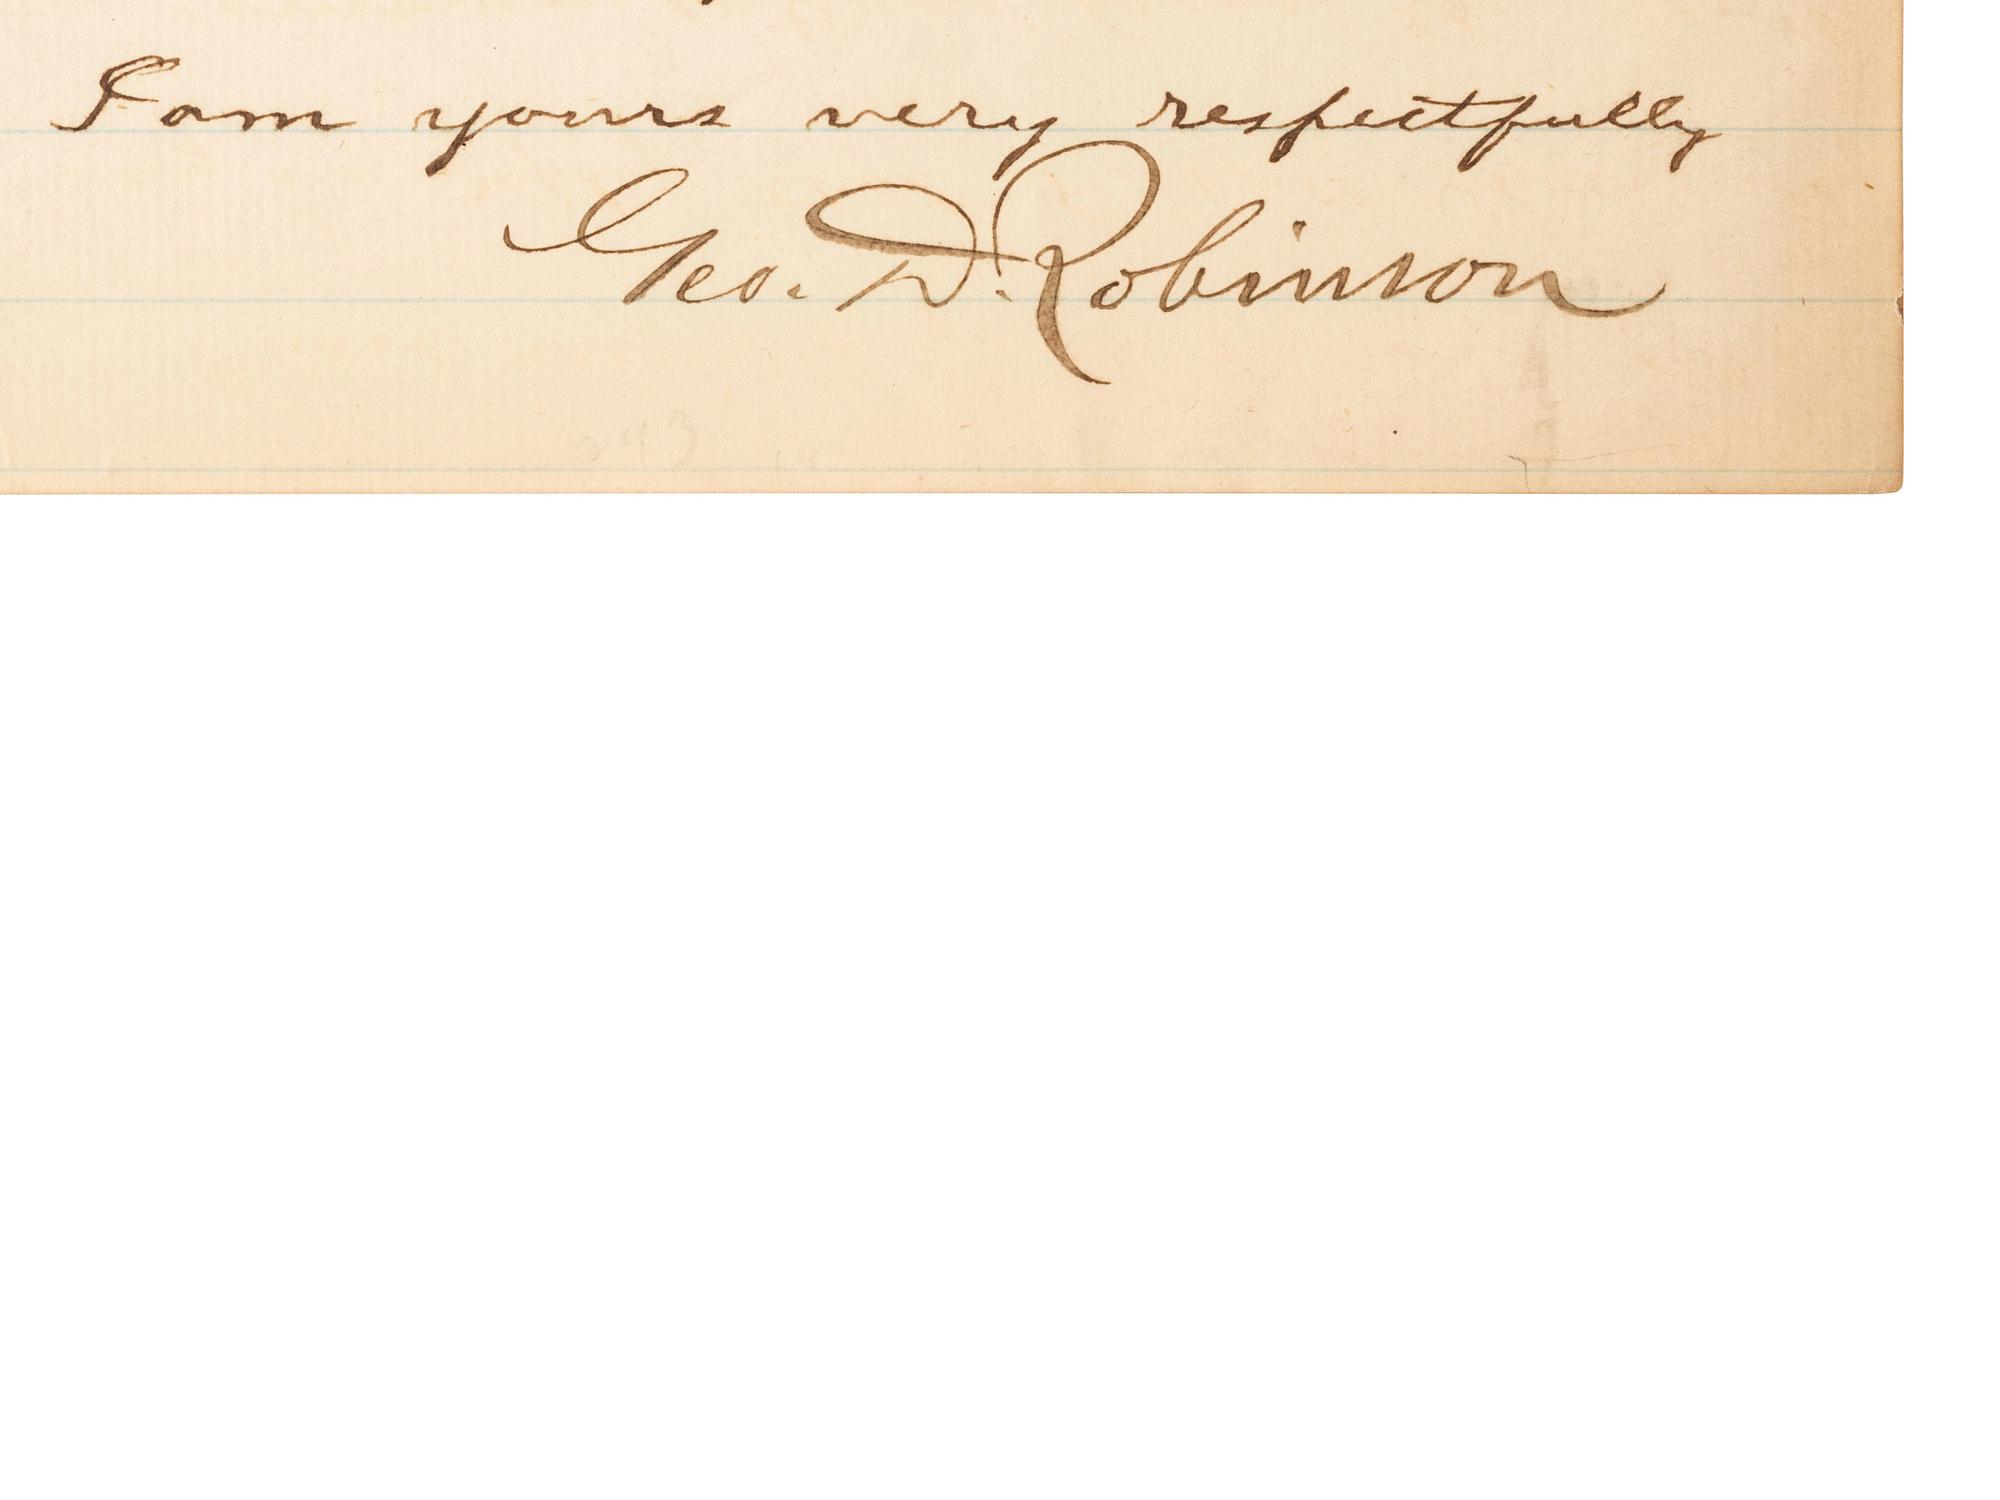 I am yours very respectfully
Geo. D. Robinson